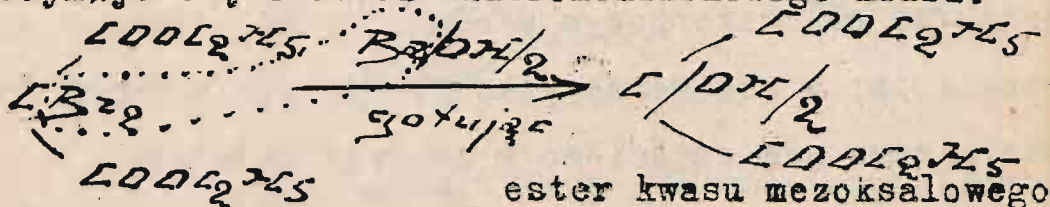 COOC₂H₅ Ba/OH/₂ COOC₂H₅
CBr₂ → C/OH/₂
gotując
COOC₂H₅ COOC₂H₅
ester kwasu mezoksalowego